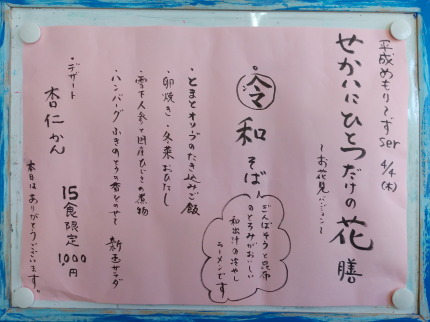 平成めもり〜ずser 4/4(木)
せかいにひとつだけの花膳
〜お花見バージョン〜
令和そば
ごんばそうと昆布
のとろみがおいしい
和出汁の冷やし
ラーメンです
・とまととオリーブのたき込みご飯
・卵焼き・冬菜おひたし
・雪下人参と国産ひじきの煮物
・ハンバーグ ふきのとうの香をのせて 新玉サラダ
・デザート
杏仁かん
15食限定
1,000円
本日はありがとうございます。